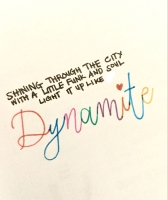 SHINING THROUGH THE CITY
WITH A LITTLE FUNK AND SOUL
LIGHT IT UP LIKE
Dynamite